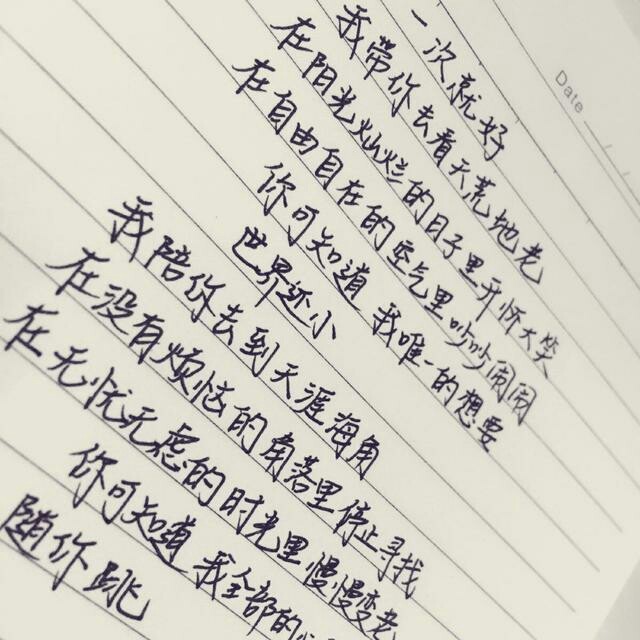 Date
一次就好
我带你去看天荒地老
在阳光灿烂的日子里开怀大笑
在自由自在的空气里吵吵闹闹
你可知道 我唯一的想要
世界还小
我陪你去到天涯海角
在没有烦恼的角落里停止寻找
在无忧无虑的时光里慢慢变老
你可知道 我全部的心
随你跳